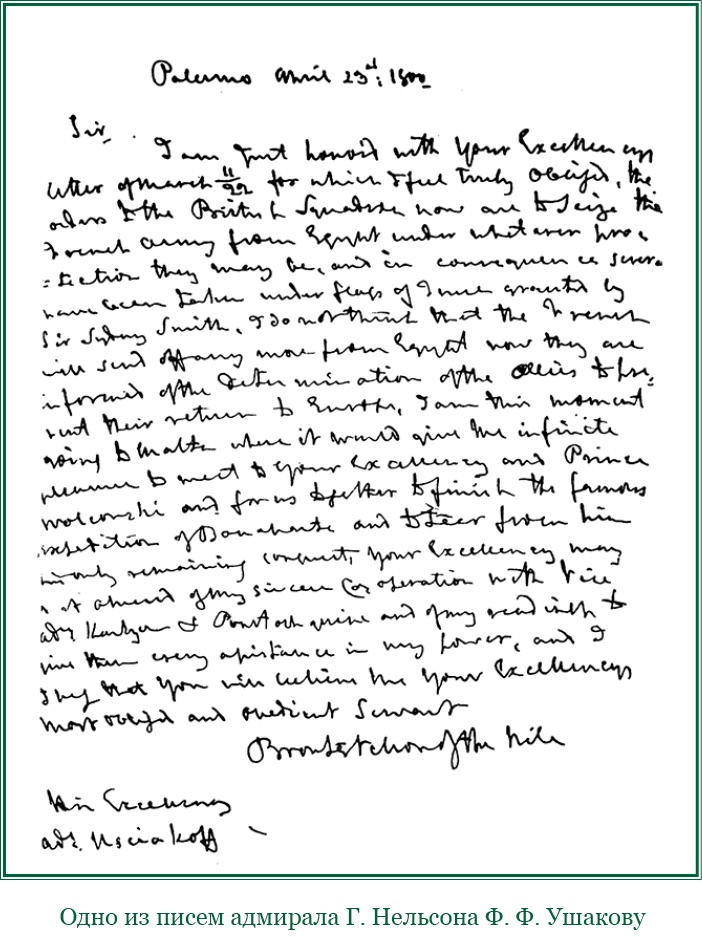 Palermo April 23d: 1800
Sir,
I am just honored with your Excellencys
letter of March 11/22 for which I feel truly obliged, the
orders to the British Squadron now are to seize the
French army from Egypt under whatever pro=
=tection they may be, and in consequence several
have been taken under flags of Truce granted by
Sir Sydney Smith, I do not think that the French
will send off any more from Egypt now they are
informed of the determination of the allies to pre,
vent their return to Europe, I am this moment
going to Malta where it would give me infinite
pleasure to meet to your Excellency and Prince
and for us together to finish the famous
expedition of Bonaparte and to tear from him
his only remaining conquest, your Excellency may
of my sincere Cooperation with Vice
adl. and of my readiness to
give them every assistance in my power, and I
beg that you will believe me your Excellencys
most obliged and obedient Servant
Bronte Nelson of the Nile
His Excellency
adl. Usciakoff
Одно из писем адмирала Г. Нельсона Ф. Ф. Ушакову